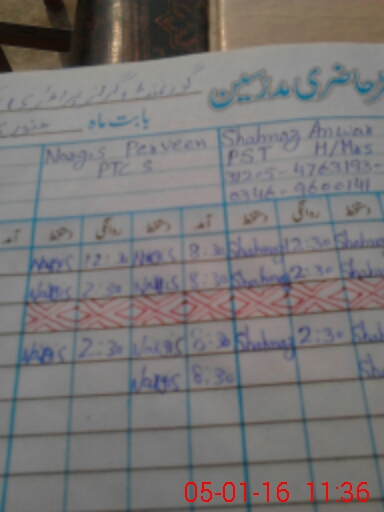 حاضری مدرسین
بابت ماہ
Nargis Perveen
PTC S
Shahnaz Anwar
PST H/Mis
31205-4763193-
0346-9600141
آمد دستخط روانگی دستخط آمد دستخط روانگی دستخط
Nargis 12:30 Nargis 8:30 Shahnaz 12:30 Shahnaz
Nargis 2:30 Nargis 8:30 Shahnaz 2:30 Shahnaz
Nargis 2:30 Nargis 8:30 Shahnaz 2:30 Shah
Nargis 8:30 Sha
05-01-16 11:36